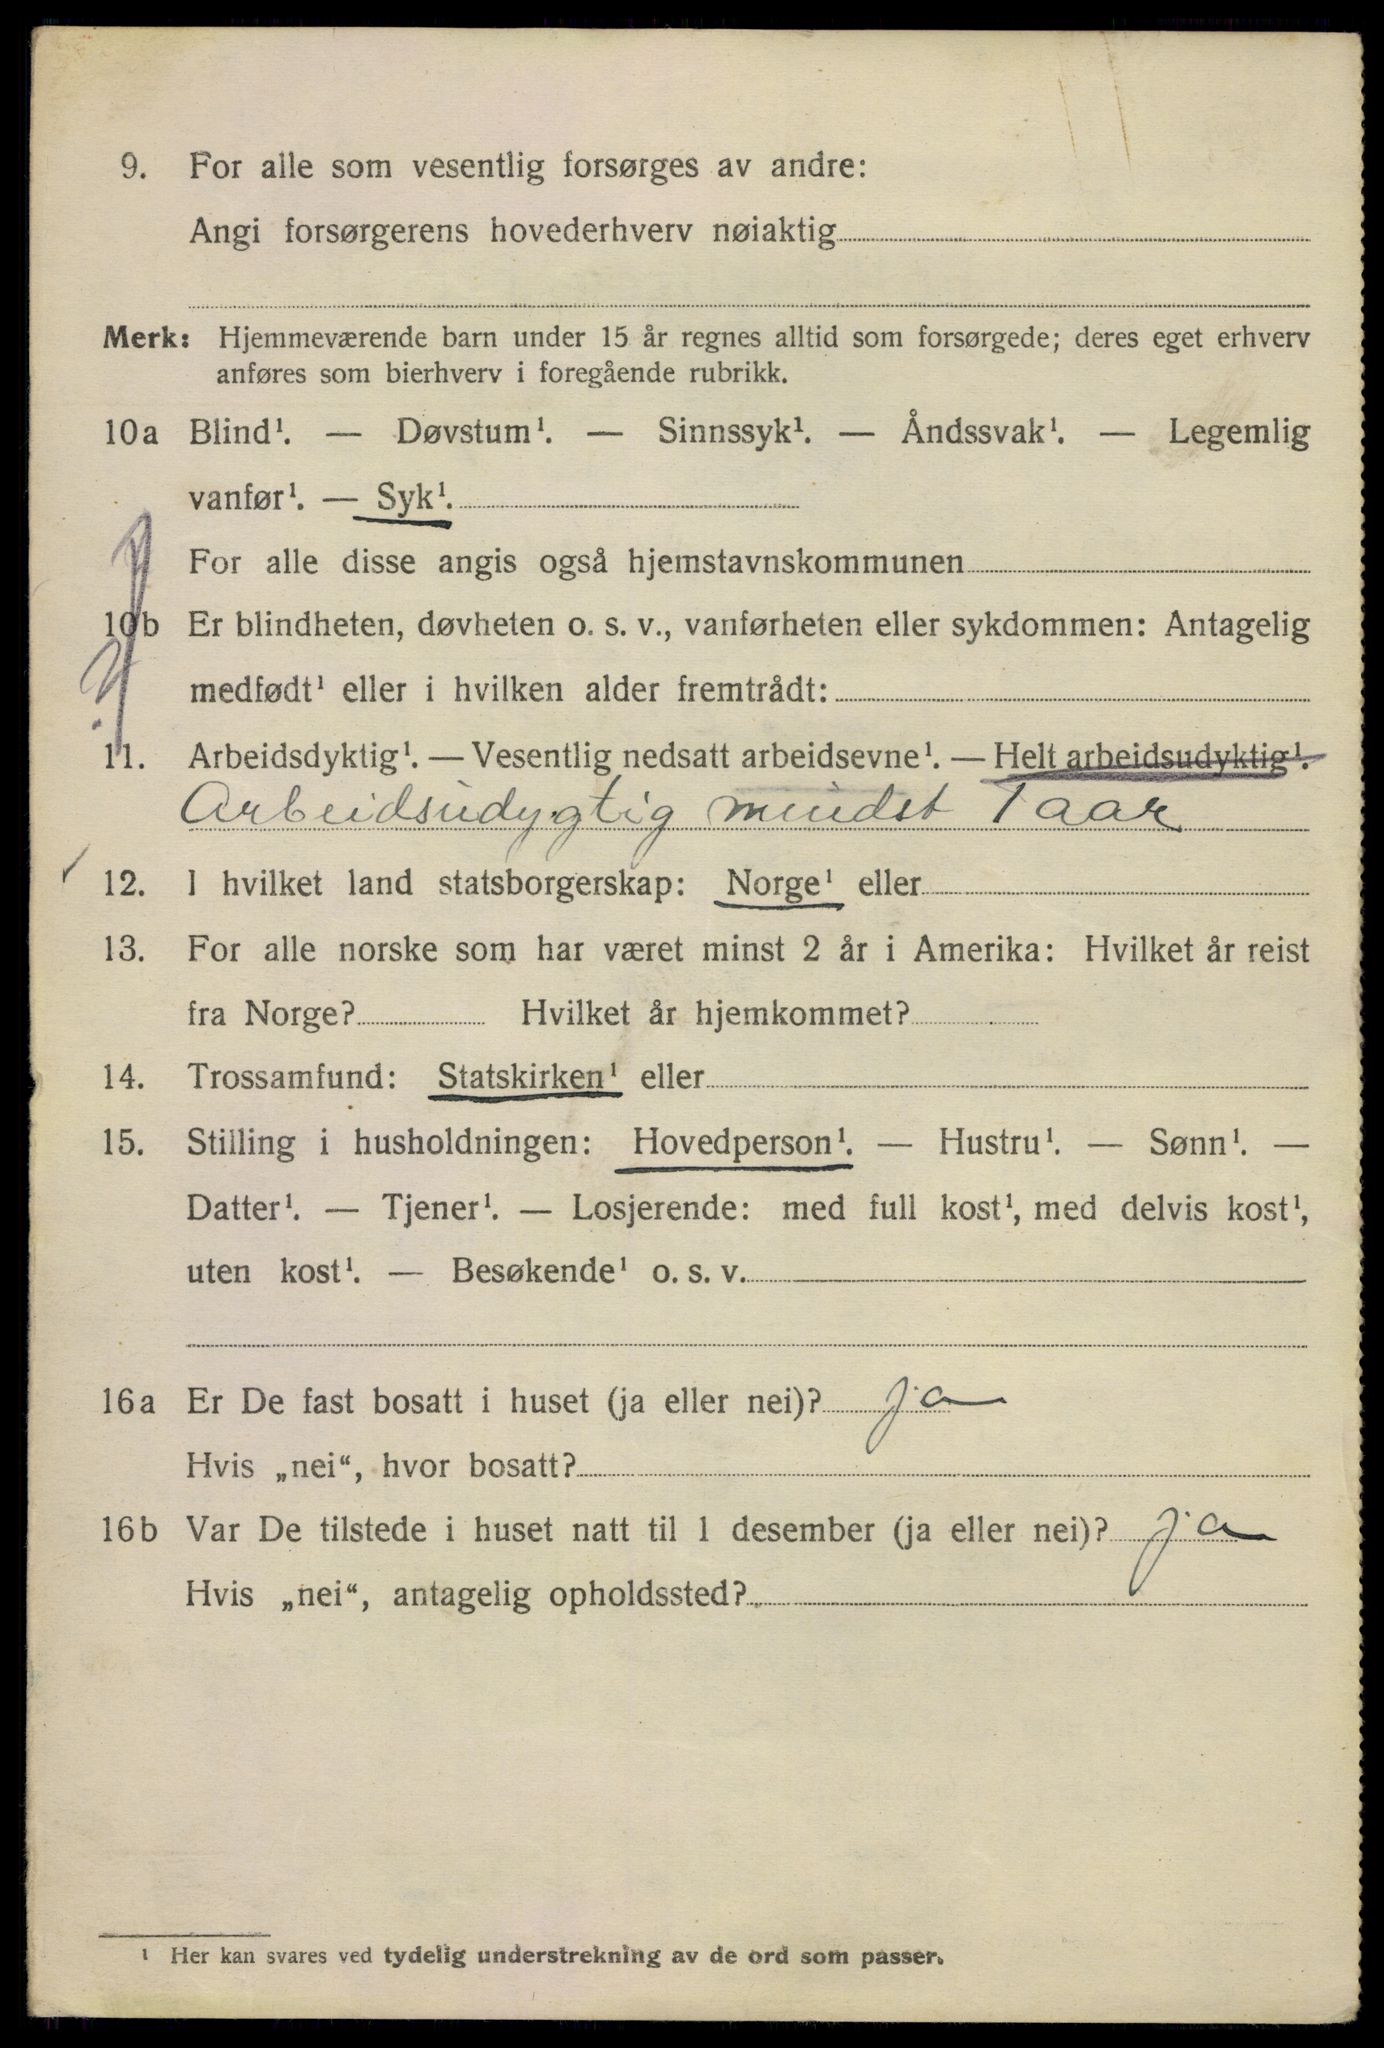 9. For alle som vesentlig forsørges av andre:
Angi forsørgerens hovederhverv nøiaktig
Merk: Hjemmeværende barn under 15 år regnes alltid som forsørgede; deres eget erhverv
anføres som bierhverv i foregående rubrikk.
10a Blind¹. — Døvstum¹. — Sinnssyk¹. — Åndssvak¹. — Legemlig
vanfør¹. — Syk¹.
For alle disse angis også hjemstavnskommunen
10b Er blindheten, døvheten o. s. v., vanførheten eller sykdommen: Antagelig
medfødt¹ eller i hvilken alder fremtrådt:
11. Arbeidsdyktig¹. — Vesentlig nedsatt arbeidsevne¹. — Helt arbeidsudyktig¹.
Arbeidsudygtig mindst 1 aar
12. I hvilket land statsborgerskap: Norge¹ eller
13. For alle norske som har været minst 2 år i Amerika: Hvilket år reist
fra Norge? Hvilket år hjemkommet?
14. Trossamfund: Statskirken¹ eller
15. Stilling i husholdningen: Hovedperson¹. — Hustru¹. — Sønn¹. —
Datter¹. — Tjener¹. — Losjerende: med full kost¹, med delvis kost¹,
uten kost¹. — Besøkende¹ o. s. v.
16a Er De fast bosatt i huset (ja eller nei)? ja
Hvis „nei“, hvor bosatt?
16b Var De tilstede i huset natt til 1 desember (ja eller nei)? ja
Hvis „nei“, antagelig opholdssted?
¹ Her kan svares ved tydelig understrekning av de ord som passer.